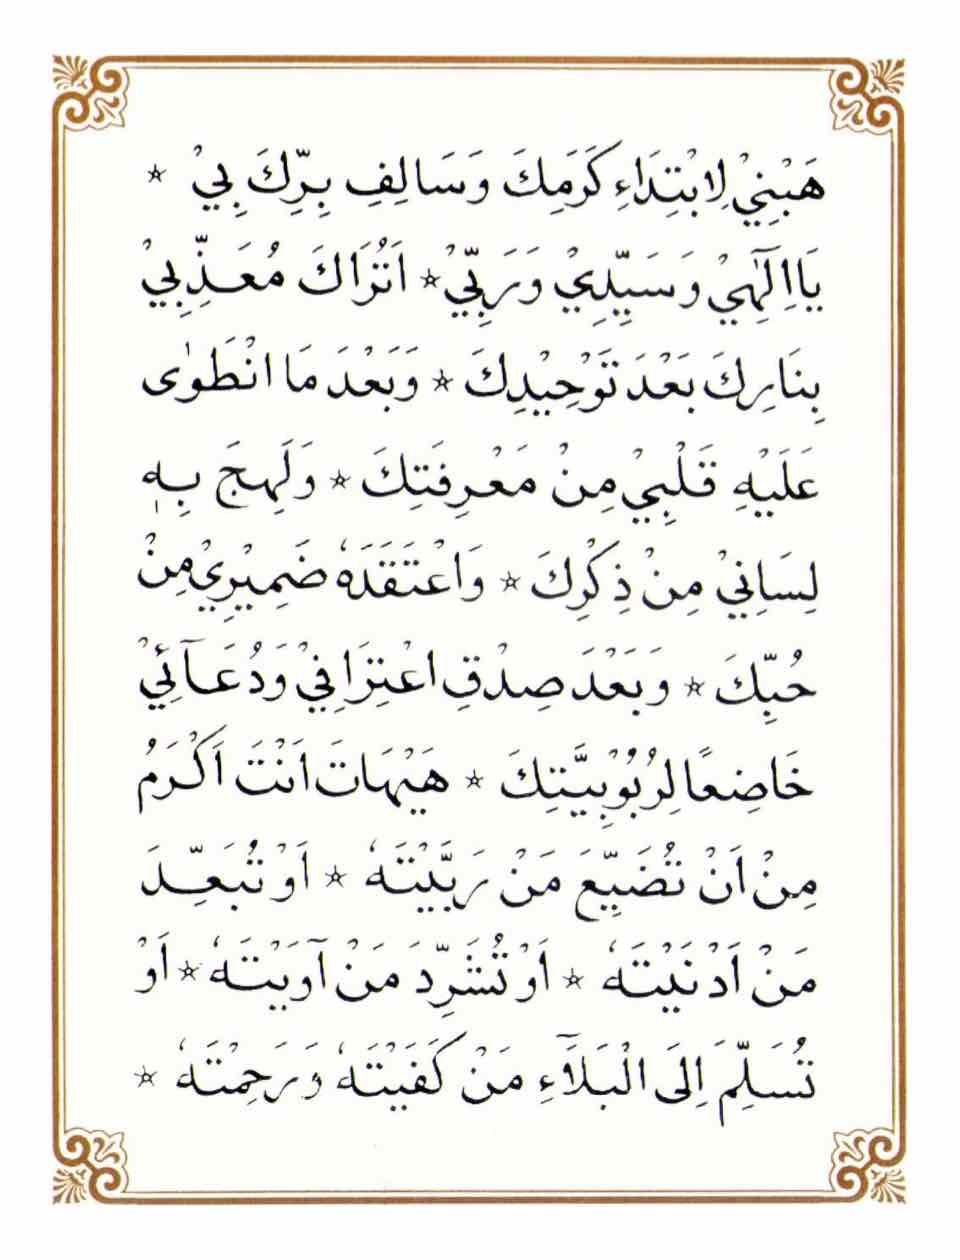 هَبْنِيْ لِابْتِدَاءِ كَرَمِكَ وَسَالِفِ بِرِّكَ بِيْ ☆
يَااِلٰهِيْ وَسَيِّدِيْ وَرَبِّيْ ☆ اَتُرَاكَ مُعَذِّبِيْ
بِنَارِكَ بَعْدَ تَوْحِيْدِكَ ☆ وَبَعْدَ مَا انْطَوٰى
عَلَيْهِ قَلْبِيْ مِنْ مَعْرِفَتِكَ ☆ وَلَهِجَ بِهٖ
لِسَانِيْ مِنْ ذِكْرِكَ ☆ وَاعْتَقَدَهٗ ضَمِيْرِيْ مِنْ
حُبِّكَ ☆ وَبَعْدَ صِدْقِ اعْتِرَافِيْ وَدُعَآئِيْ
خَاضِعًا لِرُبُوْبِيَّتِكَ ☆ هَيْهَاتَ اَنْتَ اَكْرَمُ
مِنْ اَنْ تُضَيِّعَ مَنْ رَبَّيْتَهٗ ☆ اَوْ تُبَعِّدَ
مَنْ اَدْنَيْتَهٗ ☆ اَوْ تُشَرِّدَ مَنْ آوَيْتَهٗ ☆ اَوْ
تُسَلِّمَ اِلَى الْبَلَآءِ مَنْ كَفَيْتَهٗ وَرَحِمْتَهٗ ☆